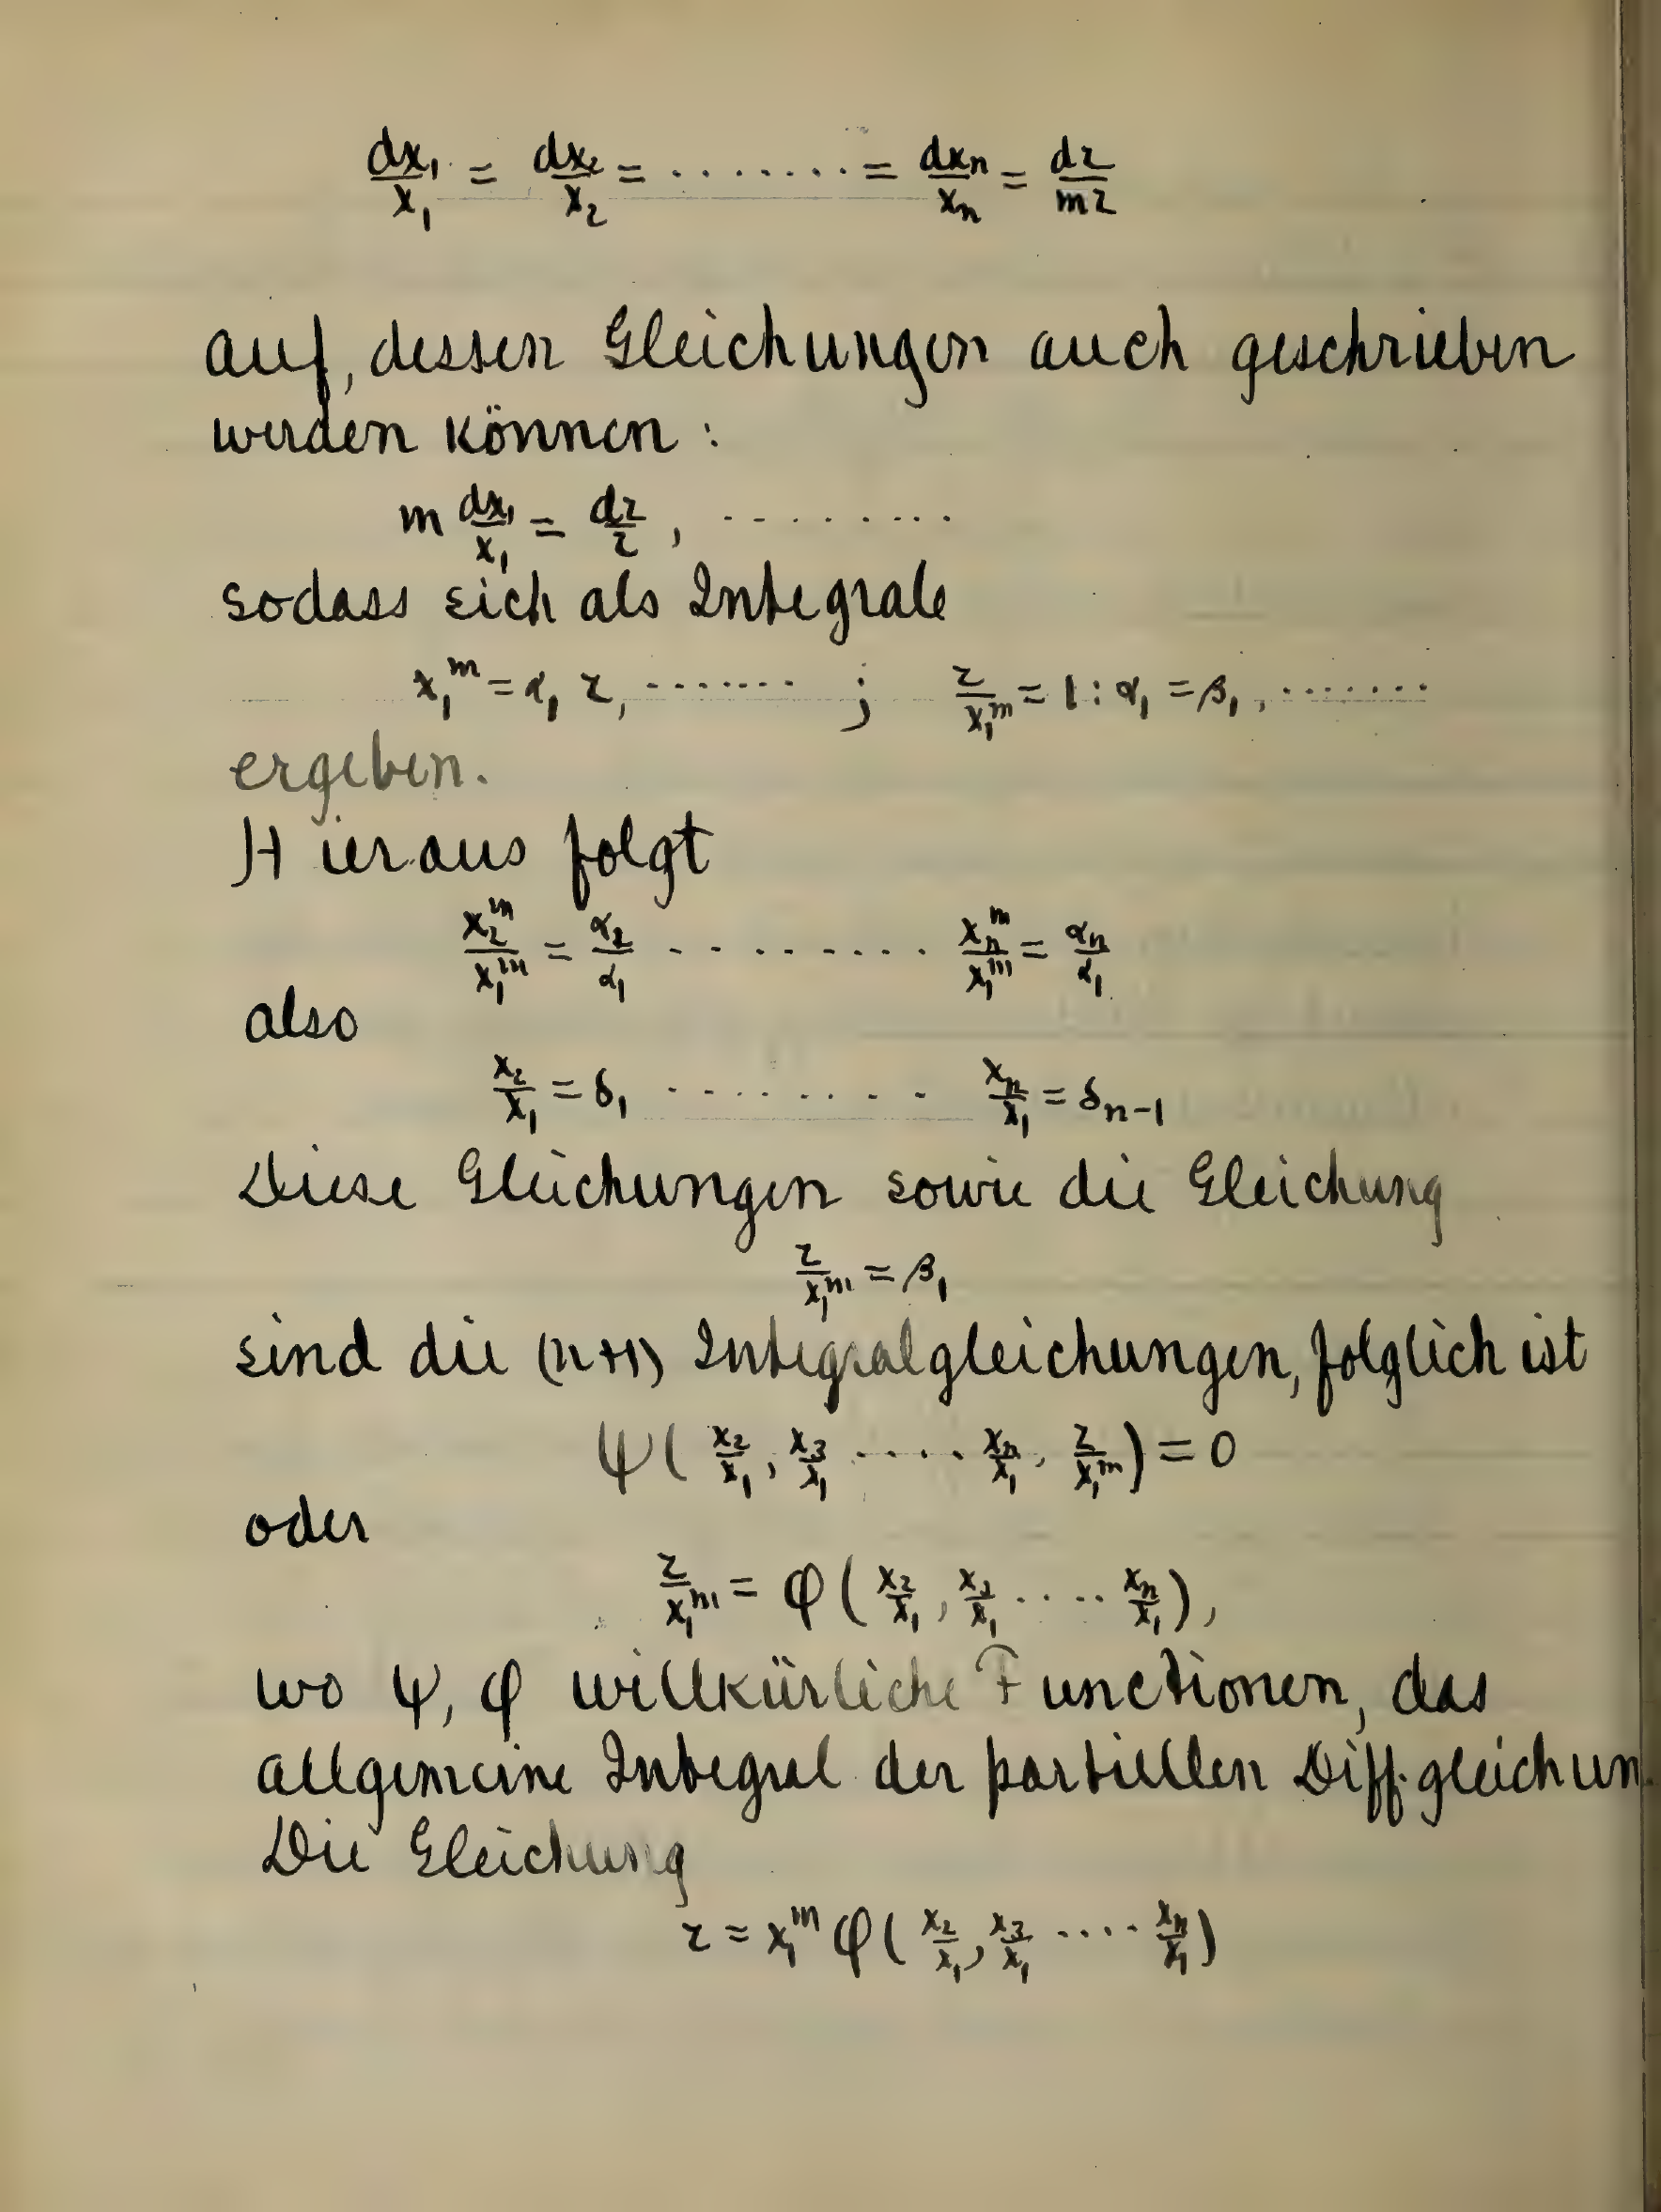 dx₁/x₁ = dx₂/x₂ = ........ = dxₙ/xₙ = dz/mz
auf, dessen Gleichungen auch geschrieben
werden können :
m dx₁/x₁ = dz/z , .........
sodass sich als Integrale
x₁ᵐ = α₁ z, ....... ; z/x₁ᵐ = 1 : α₁ = β₁, .......
ergeben.
Hieraus folgt
x₂ᵐ/x₁ᵐ = α₂/α₁ ......... xₙᵐ/x₁ᵐ = αₙ/α₁
also
x₂/x₁ = δ₁ ......... xₙ/x₁ = δₙ₋₁
Diese Gleichungen sowie die Gleichung
z/x₁ᵐ = β₁
sind die (n+1) Integralgleichungen, folglich ist
ψ( x₂/x₁, x₃/x₁ ..... xₙ/x₁, z/x₁ᵐ ) = 0
oder
z/x₁ᵐ = φ ( x₂/x₁, x₃/x₁ ..... xₙ/x₁ ),
wo ψ, φ willkürliche Functionen, das
allgemeine Integral der partiellen Diff.gleichun
Die Gleichung
z = x₁ᵐ φ ( x₂/x₁, x₃/x₁ .... xₙ/x₁ )